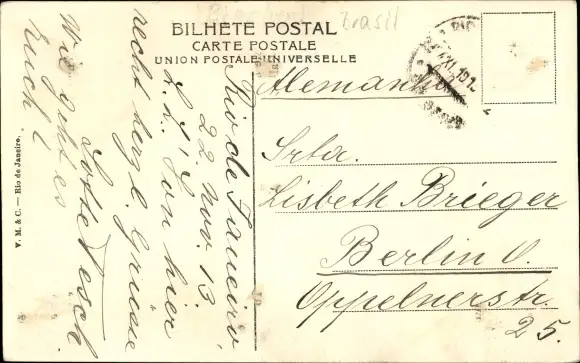 Brasil
BILHETE POSTAL
CARTE POSTALE
UNION POSTALE UNIVERSELLE
Rio de Janeiro,
22. Nov 13.
L. L. Von hier
recht herzl. Grüsse
Wie geht es
Euch?
Lotte Pesch.
V. M. & C. — Rio de Janeiro.
Alemanha
Srta.
Lisbeth Brieger
Berlin O.
Oppelnerstr.
25.